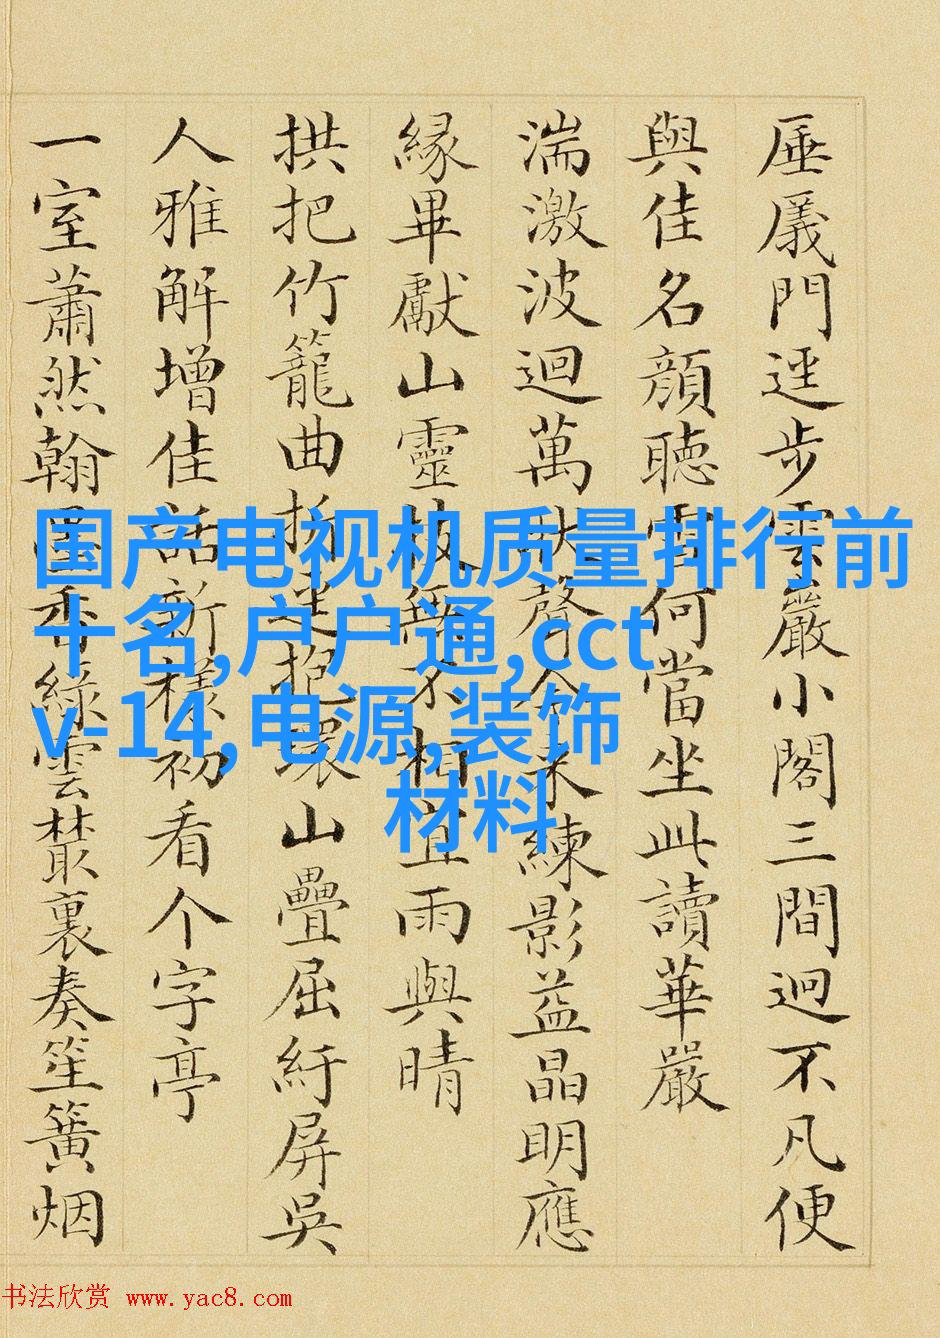 厜㕒門逕步雲巖小閣三間迥不凡便
與佳名顔聽雪何當坐此讀華嚴
湍激波迴萬狀聲分来練影益晶明應
緣畢獻山靈技無不相宜雨與晴
拱把竹籠曲折抱環山疊屈紆屏吳
人雅解增佳話新樣初看个字亭
一室蕭然翰墨香綠雲叢裏奏笙簧烟
国产电视机质量排行前
十名,户户通,cct
v-14,电源,装饰
材料
书法欣赏 www.yac8.com